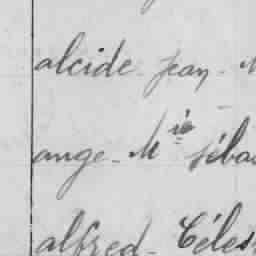 alcide Jean - M
ange - Mie Séba
alfred - Céles